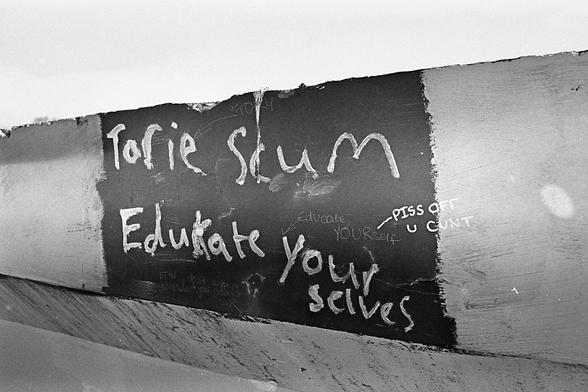 TORY
Torie Scum
Edukate
Educate
YOURSElF
PISS OFF
U CUNT
Your
selves